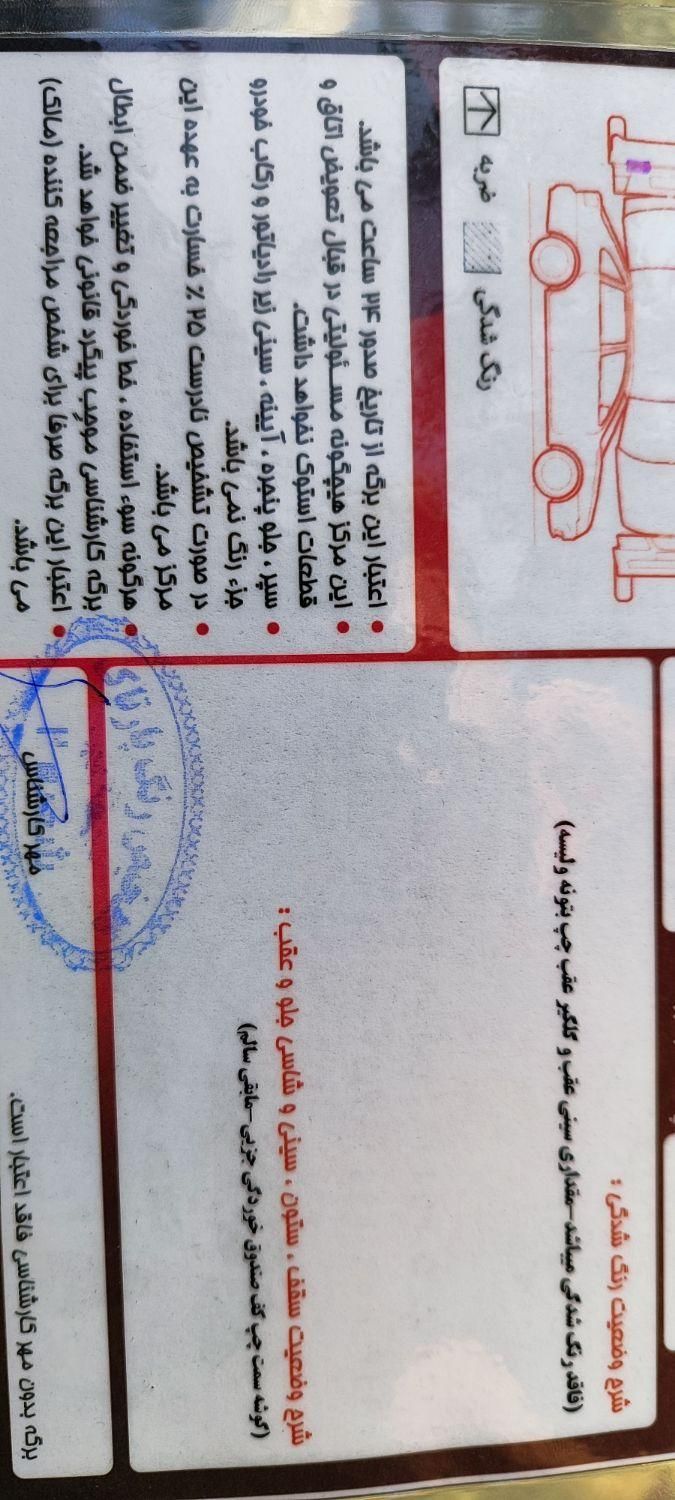 ضربه
رنگ شدگی
اعتبار این برگه از تاریخ صدور ۲۴ ساعت می باشد.
این مرکز هیچگونه مسئولیتی در قبال تعویض اتاق و
قطعات استوک نخواهد داشت.
سپر ، جلو پنجره ، آیینه ، سینی زیر رادیاتور و رکاب خودرو
جزء رنگ نمی باشد.
در صورت تشخیص نادرست ۲۵ % خسارت به عهده این
مرکز می باشد.
هرگونه سوء استفاده ، خط خوردگی و تغییر ضمن ابطال
برگه کارشناسی موجب پیگرد قانونی خواهد شد.
اعتبار این برگه صرفا برای شخص مراجعه کننده (مالک)
می باشد.
شرح وضعیت رنگ شدگی :
(فاقد رنگ شدگی میباشد-مقداری سینی عقب و گلگیر عقب چپ بتونه و لیسه)
شرح وضعیت سقف ، ستون ، سینی و شاسی جلو و عقب :
(گوشه سمت چپ کف صندوق خوردگی جزیی-مابقی سالم)
مهر کارشناس
برگه بدون مهر کارشناسی فاقد اعتبار است.